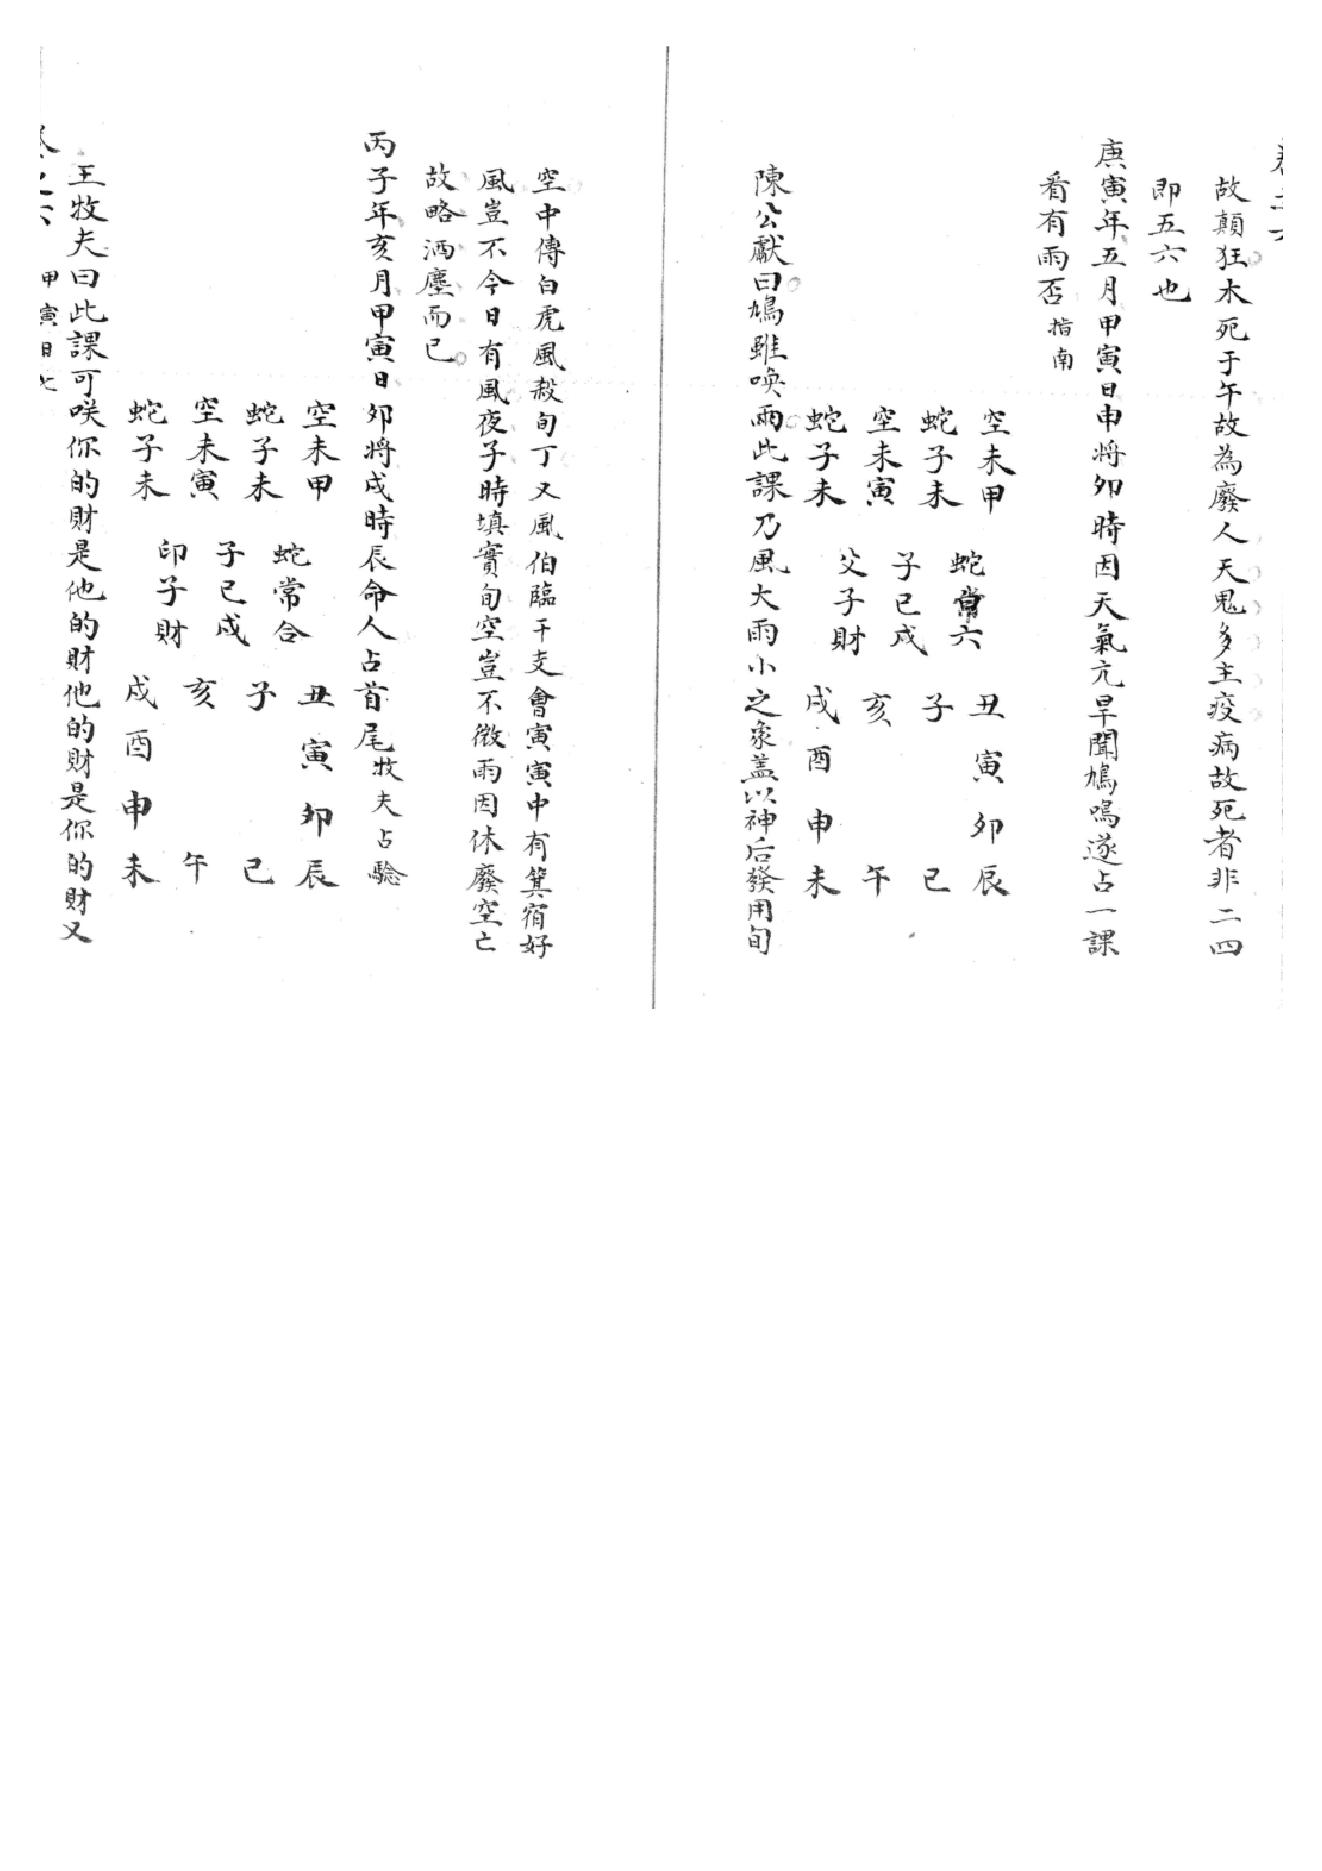 故顛狂木死于午故為廢人天鬼多主疫病故死者非二四
即五六也
庚寅年五月甲寅日申將夘時因天氣亢旱聞鳩鳴遂占一課
看有雨否指南
空未甲
蛇子未
空未寅
蛇子未
蛇常六
子巳戌
父子財
丑寅夘辰
子巳
亥午
戌酉申未
陳公獻曰鳩雖喚雨此課乃風大雨小之象蓋以神后發用旬
空中傳白虎風殺旬丁又風伯臨干支會寅寅中有箕宿好
風豈不今日有風夜子時填實旬空豈不微雨因休廢空亡
故略洒塵而已
丙子年亥月甲寅日夘將戌時辰命人占首尾牧夫占驗
空未甲
蛇子未
空未寅
蛇子未
蛇常合
子巳戌
印子財
丑寅夘辰
子巳
亥午
戌酉申未
王牧夫曰此課可咲你的財是他的財他的財是你的財又
甲寅日七